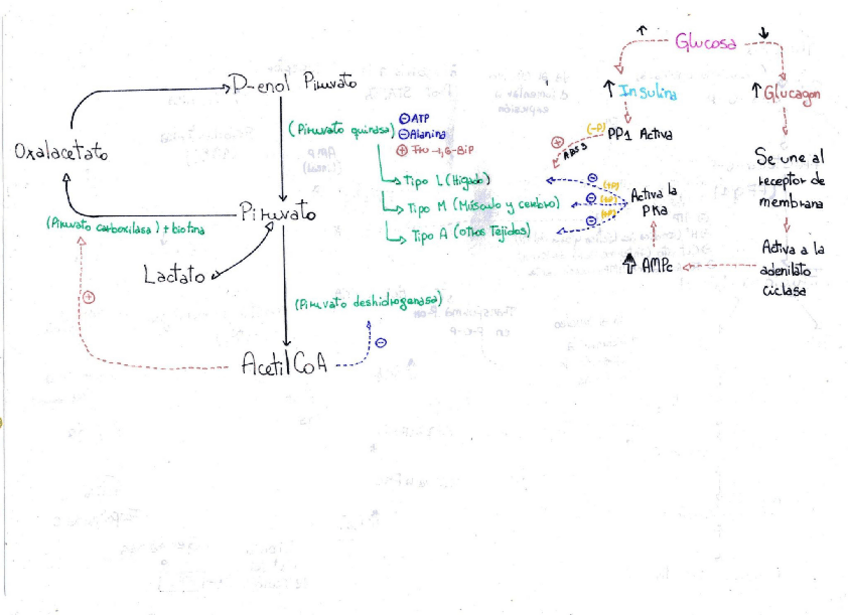 ↑ Glucosa ↓
D-enol Piruvato
↑ Insulina
↑ Glucagon
(Piruvato quinasa)
⊖ ATP
⊖ Alanina
⊕ Fru-1,6-BiP
(-P) PP1 Activa
⊕
Oxalacetato
Se une al
receptor de
membrana
Tipo L (Hígado)
Tipo M (Músculo y cerebro)
Tipo A (Otros Tejidos)
⊖ (+P)
⊖ (+P)
⊖ (+P)
Activa la
PKa
Piruvato
(Piruvato carboxilasa) + biotina
Activa a la
adenilato
ciclasa
↑ AMPc
Lactato
⊕
(Piruvato deshidrogenasa)
⊖
Acetil CoA